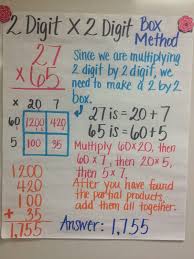 2 Digit X 2 Digit Box Method
27
x 65
Since we are multiplying
2 digit by 2 digit, we
need to make a 2 by 2
box.
x 20 7
60 1200 420
5 100 35
27 is = 20 + 7
65 is = 60 + 5
Multiply 60x20, then
60 x 7, then 20x5,
then 5x7.
1200
420
100
+ 35
1,755
After you have found
the partial products,
add them all together.
Answer: 1,755